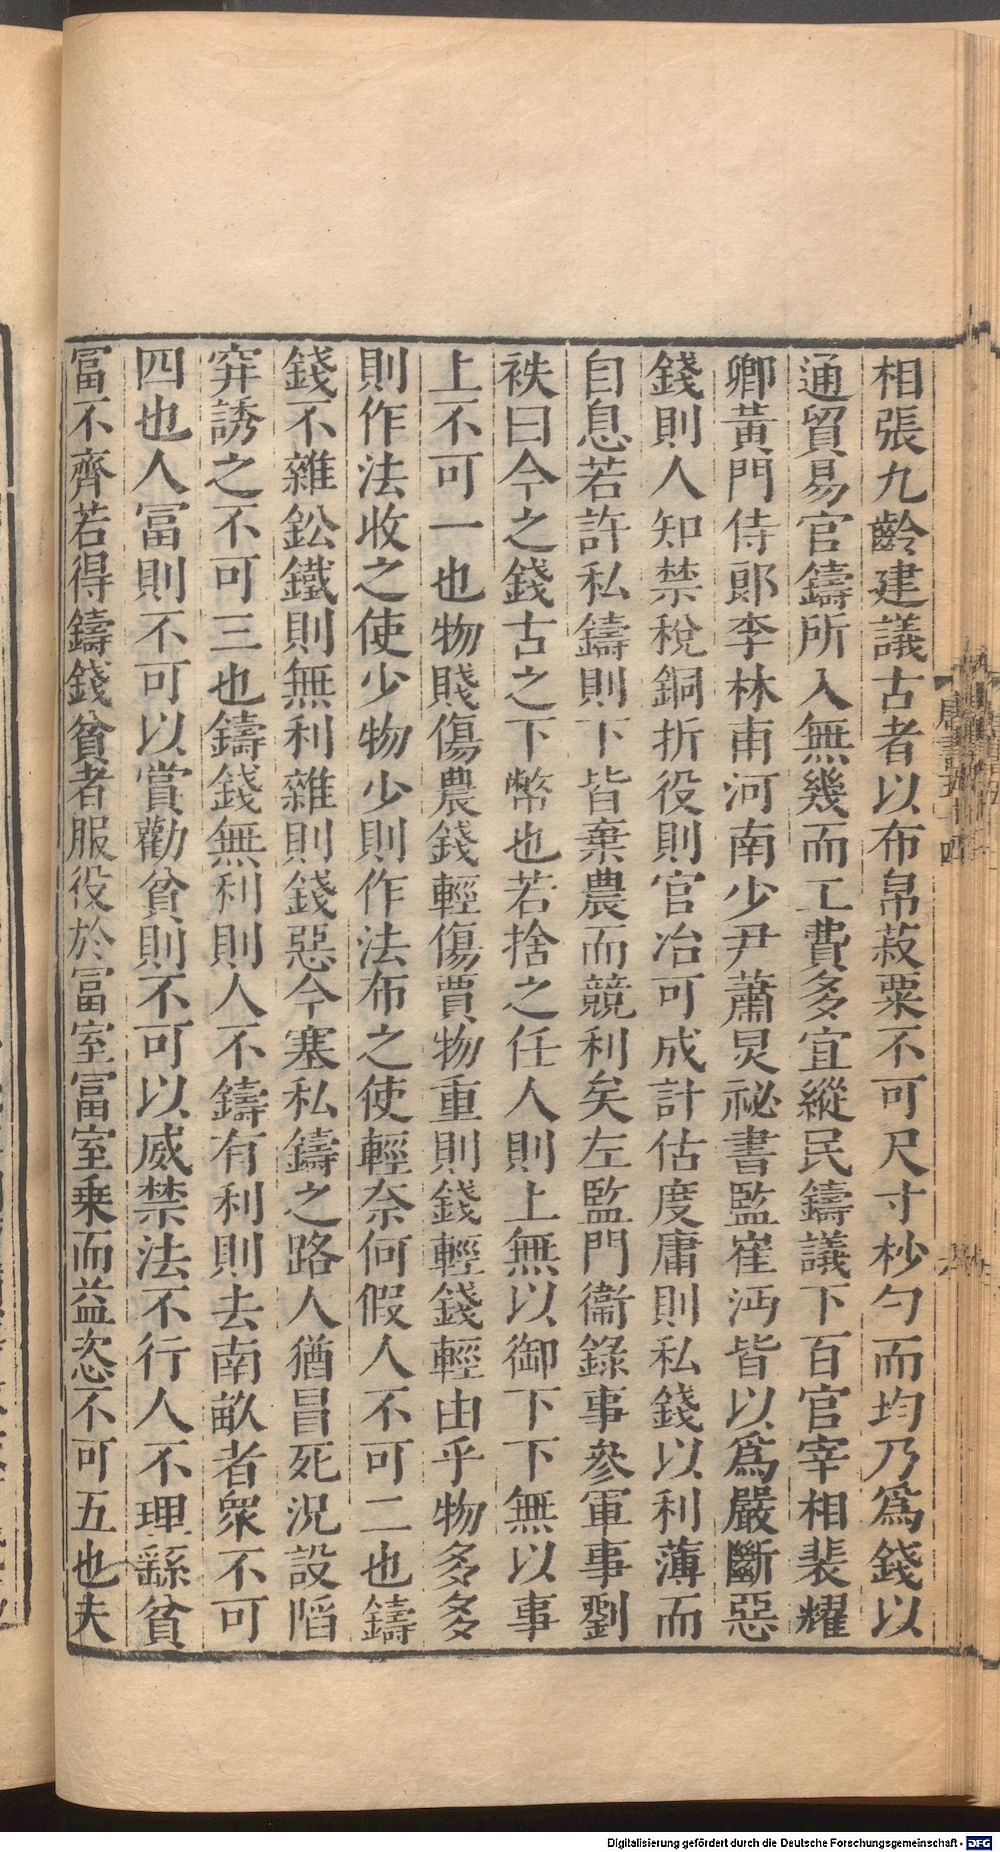 相張九齡建議古者以布帛菽粟不可尺寸杪勺而均乃爲錢以
通貿易官鑄所入無幾而工費多宜縱民鑄議下百官宰相裴耀
卿黃門侍郎李林甫河南少尹蕭炅祕書監崔沔皆以爲嚴斷惡
錢則人知禁稅銅折役則官冶可成計估度庸則私錢以利薄而
自息若許私鑄則下皆棄農而競利矣左監門衞錄事參軍事劉
秩曰今之錢古之下幣也若捨之任人則上無以御下下無以事
上不可一也物賤傷農錢輕傷賈物重則錢輕錢輕由乎物多多
則作法收之使少物少則作法布之使輕奈何假人不可二也鑄
錢不雜鈆鐵則無利雜則錢惡今塞私鑄之路人猶冒死況設陷
穽誘之不可三也鑄錢無利則人不鑄有利則去南畝者衆不可
四也人冨則不可以賞勸貧則不可以威禁法不行人不理繇貧
冨不齊若得鑄錢貧者服役於冨室冨室乗而益恣不可五也夫
唐書五十四
Digitalisierung gefördert durch die Deutsche Forschungsgemeinschaft - DFG